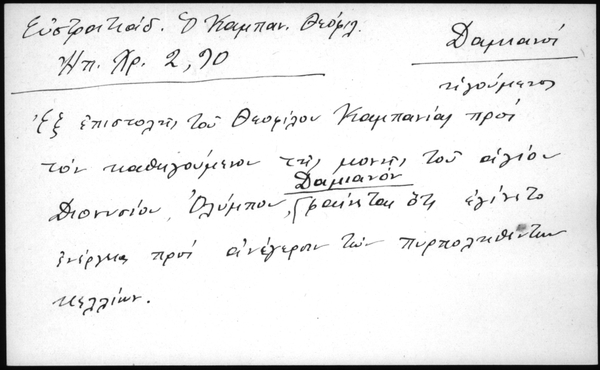 Εὐστρατιάδ. Ὁ Καμπαν. Θεόφιλ.
Ἠπ. Χρ. 2, 70
Δαμιανός
ἡγούμενος
Ἐξ ἐπιστολῆς τοῦ Θεοφίλου Καμπανίας πρός
τὸν καθηγούμενον τῆς μονῆς τοῦ ἁγίου
Δαμιανόν
Διονυσίου Ὀλύμπου, φαίνεται ὅτι ἐγίνετο
ἐνέργεια πρός ἀνέγερσιν τῶν πυρποληθέντων
κελλίων.